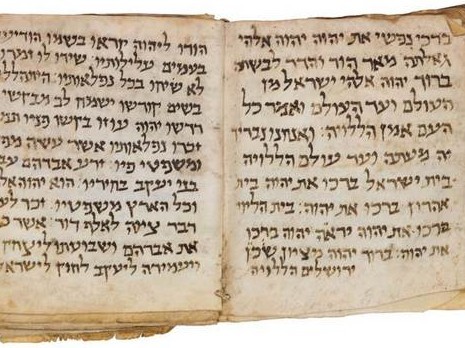 ברכי נפשי את יהוה יהוה אלהי
גדלתה מאד הוד והדר לבשת
ברוך יהוה אלהי ישראל מן
העולם ועד העולם ואמר כל
העם אמן הללויה: ואנחנו נבריך
יה מעתה ועד עולם הללויה
בית ישראל ברכו את יהוה בית
אהרון ברכו את יהוה: בית הליוי
ברכו את יהוה יראה יהוה ברכו
את יהוה: ברוך יהוה מציון שכן
ירושלים הללויה
הודו ליהוה קראו בשמו הודיעו
בעמים עלילותיו: שירו לו זמרו
לו שיחו בכל נפלאותיו: התהללו
בשם קודשו ישמח לב מבקשי
דרשו יהוה עוזו בקשו פניו
זכרו נפלאותיו אשר עשה
ומשפטי פיו: זרע אברהם
בני יעקב בחיריו: הוא יהוה
וכל הארץ משפטיו: זכר
דבר ציוה לאלף דור: אשר
את אברהם ושבועתו ליצחק
ויעמידה ליעקב לחוק לישראל